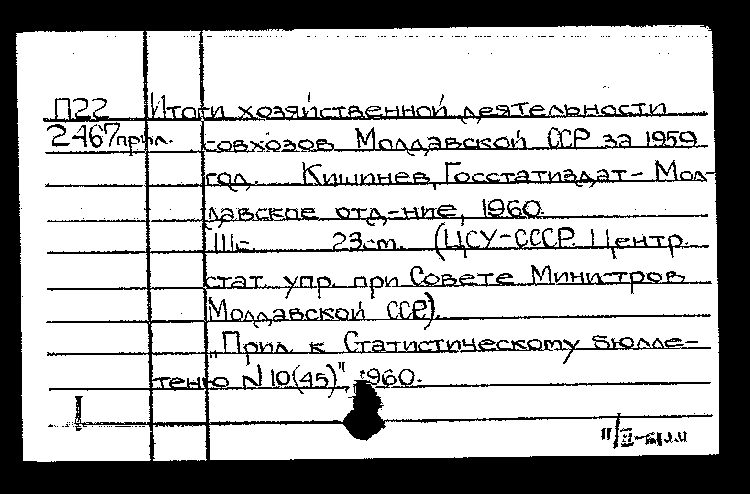 П22 Итоги хозяйственной деятельности
2467прил. совхозов Молдавской ССР за 1959
год. Кишинев, Госстатиздат - Мол-
давское отд-ние, 1960.
111с. 23cm. (ЦСУ-СССР. Центр.
стат. упр. при Совете Министров
Молдавской ССР).
"Прил. к Статистическому бюлле-
теню N 10(45)", 1960.